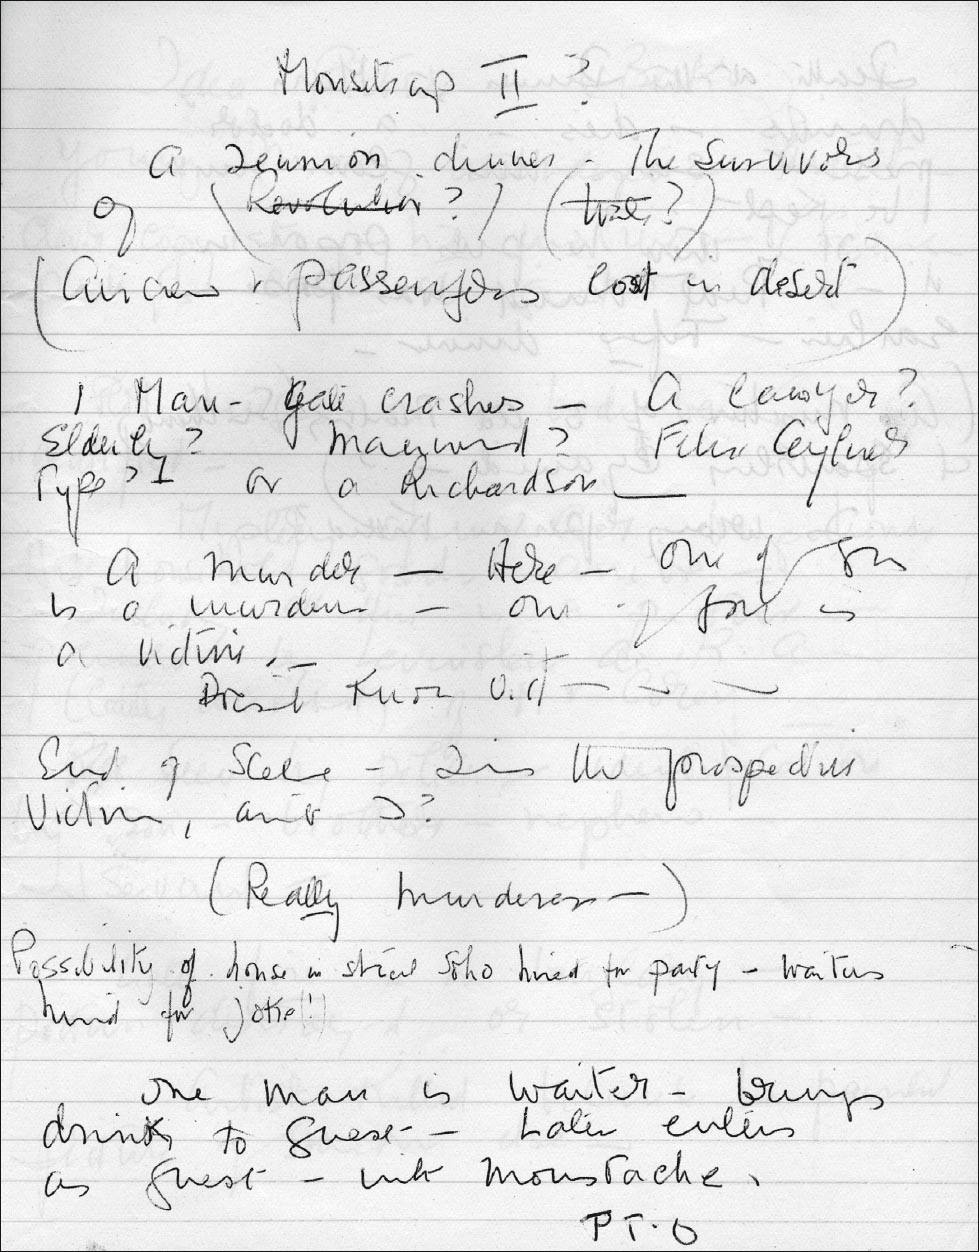 Mousetrap II ?
A reunion dinner - The survivors
of (Revolution ?) (       ?)
(Aircrew + passengers lost in desert)
1 Man - Gate crashes - A lawyer?
Elderly?         ? Felix Aylmer
Type? or a Richardson
A murder - Here - One of you
is a murderer - one of you is
a victim -
Doesn't know it
End of Scene - is the prospective
Victim,
(Really murderer -)
Possibility of house in street Soho hired for party - waiters
hired for joke(!)
One man is waiter - brings
drinks to guest - Later enters
as guest - with moustache.
P T. O